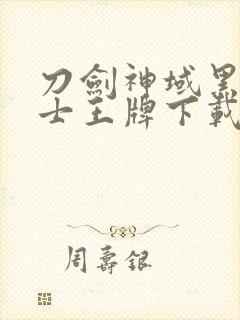 刀劍神域黑
士王牌下載
周壽銀